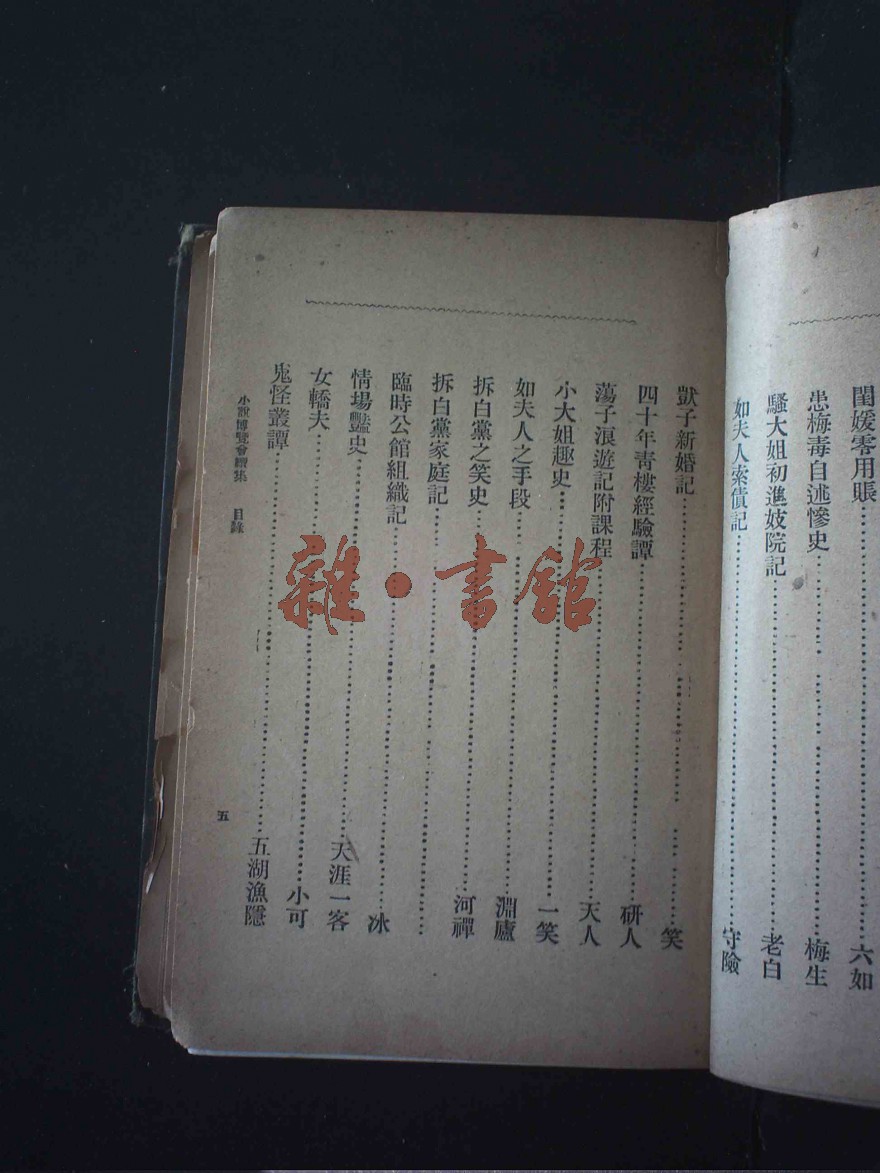 閨媛零用賬……六如
患梅毒自述慘史……梅生
騷大姐初進妓院記……老白
如夫人索債記……守險
獃子新婚記……笑
四十年青樓經驗譚……研人
蕩子浪遊記附課程……天人
小大姐趣史……一笑
如夫人之手段……淵廬
拆白黨之笑史……河禪
拆白黨家庭記……
臨時公館組織記……冰
情場豔史……天涯一客
女轎夫……小可
鬼怪叢譚……五湖漁隱
小說博覽會續集 目錄
五
雜·書館